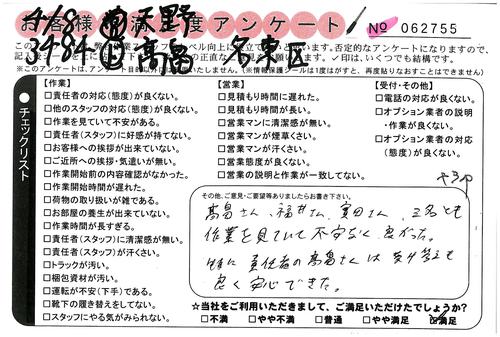 お客様満足度アンケート
4/18 天野
No 062755
3484 高畠 名東区
否定的なアンケートになりますので、
✓印は、いくつでも結構です。
※このアンケートは、アンケート目的以外に
いたしません。(※情報保護シールは1度はがすと、再度貼りなおすことはできません)
チェックリスト
【作業】
□責任者の対応(態度)が良くない。
□他のスタッフの対応(態度)が良くない。
□作業を見ていて不安がある。
□責任者(スタッフ)に好感が持てない。
□お客様への挨拶が出来ていない。
□ご近所への挨拶・気遣いが無い。
□作業開始前の内容確認がなかった。
□作業開始時間が遅れた。
□荷物の取り扱いが雑である。
□お部屋の養生が出来ていない。
□作業時間が長すぎる。
□責任者(スタッフ)に清潔感が無い。
□責任者(スタッフ)が汗くさい。
□トラックが汚い。
□梱包資材が汚い。
□運転が不安(下手)である。
□靴下の履き替えをしてない。
□スタッフにやる気がみられない。
【営業】
□見積もり時間に遅れた。
□見積もり時間が長い。
□営業マンに清潔感が無い。
□営業マンが煙草くさい。
□営業マンが汗くさい。
□営業態度が良くない。
□営業の説明と作業が一致してない。
【受付・その他】
□電話の対応が良くない。
□オプション業者の説明
・作業が良くない。
□オプション業者の対応
(態度)が良くない。
+3p
その他、ご意見・ご要望等ありましたらお書き下さい。
高畠さん、福井さん、冥田さん、三名とも
作業を見ていて不安なく良かった。
特に責任者の高畠さんは受け答えも
良く安心できた。
☆当社をご利用いただきまして、ご満足いただけたでしょうか?
□不満 □やや不満 □普通 □やや満足 ☑満足